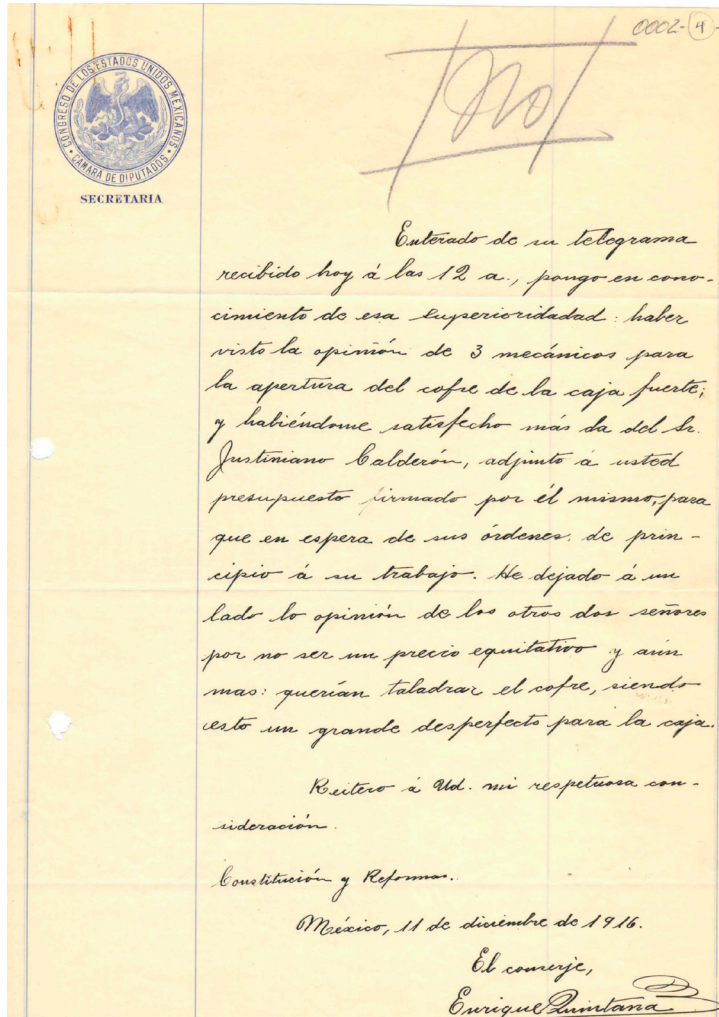 0002-4-
CONGRESO DE LOS ESTADOS UNIDOS MEXICANOS
CAMARA DE DIPUTADOS
SECRETARIA
No
Enterado de su telegrama
recibido hoy á las 12 a., pongo en cono-
cimiento de esa Superioridadad: haber
visto la opinión de 3 mecánicos para
la apertura del cofre de la caja fuerte;
y habiéndome satisfecho más da del Sr.
Justiniano Calderón, adjunto á usted
presupuesto firmado por él mismo, para
que en espera de sus órdenes, de prin-
cipio á su trabajo. He dejado á un
lado lo opinión de los otros dos señores
por no ser un precio equitativo y aún
mas: querían taladrar el cofre, siendo
esto un grande desperfecto para la caja.
Reitero á Ud. mi respetuosa con-
sideración.
Constitución y Reformas.
México, 11 de diciembre de 1916.
El conserje,
Enrique Quintana